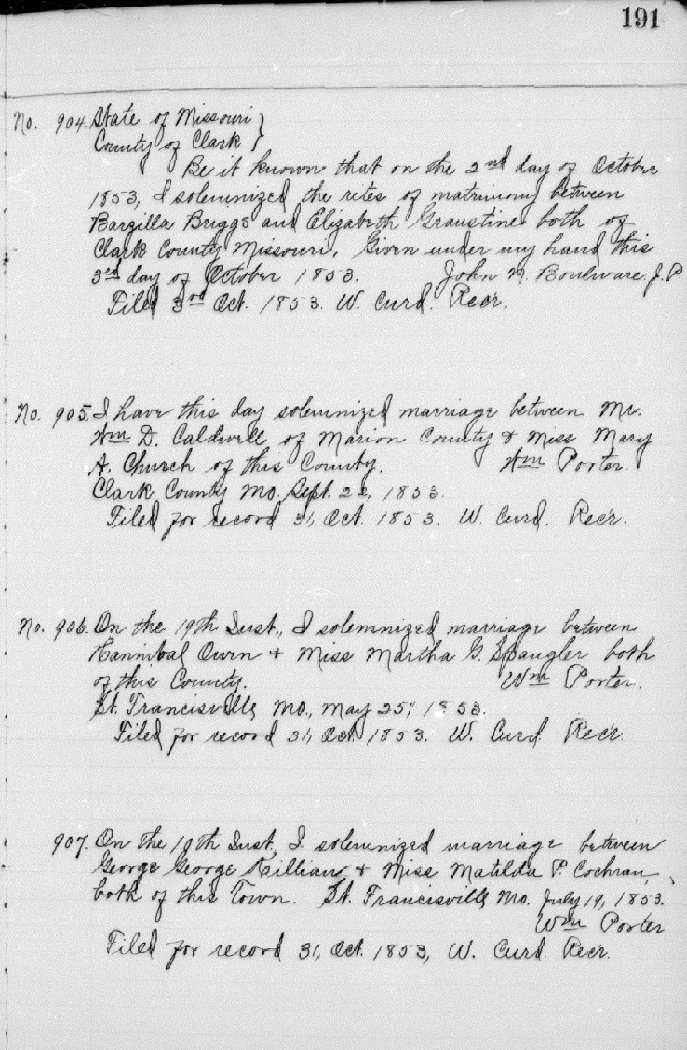 191
No. 904. State of Missouri }
County of Clark }
Be it known that on the 2nd day of October
1853, I solemnized the rites of matrimony between
Barzilla Briggs and Elizabeth Graustine both of
Clark County Missouri. Given under my hand this
3rd day of October 1853. John N. Boulware J. P
Filed 3rd Oct. 1853. W. Curd. Recr.
No. 905. I have this day solemnized marriage between Mr.
Wm D. Caldwell of Marion County & Miss Mary
A. Church of this County. Wm Porter.
Clark County Mo. Sept. 22, 1853.
Filed for record 31, Oct. 1853. W. Curd. Recr.
No. 906. On the 19th Inst., I solemnized marriage between
Hannibal Owen & Miss Martha G. Spangler both
of this County. Wm Porter.
St. Francisville, Mo., May 25, 1853.
Filed for record 31, Oct. 1853. W. Curd. Recr.
907. On the 19th Inst. I solemnized marriage between
George George Killian & Miss Matilda P. Cochran,
both of this Town. St. Francisville Mo. July 19, 1853.
Wm Porter
Filed for record 31, Oct. 1853, W. Curd Recr.